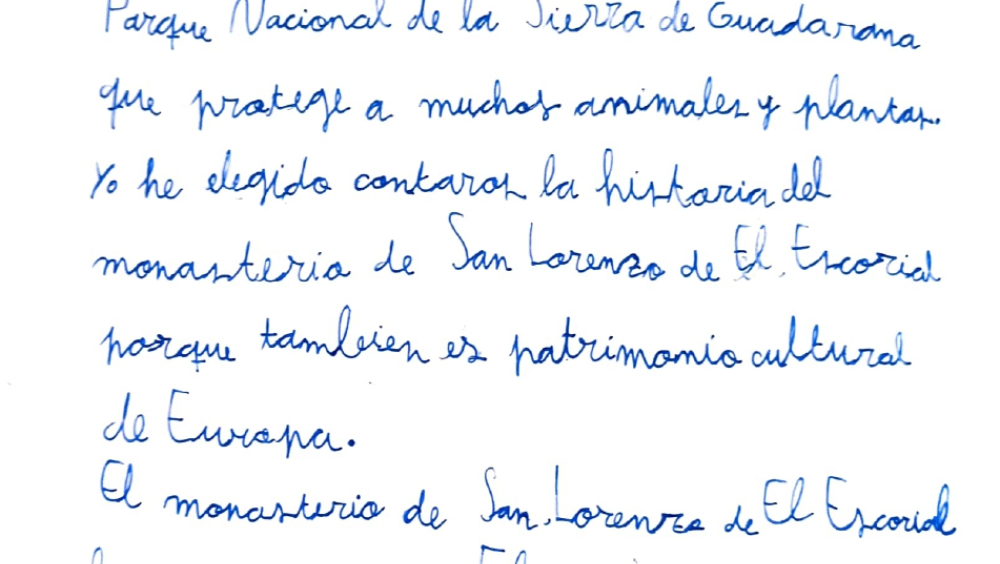 Parque Nacional de la Sierra de Guadarama
que protege a muchos animales y plantas.
Yo he elegido contaros la historia del
monasterio de San Lorenzo de El Escorial
porque tambien es patrimonio cultural
de Europa.
El monasterio de San Lorenzo de El Escorial